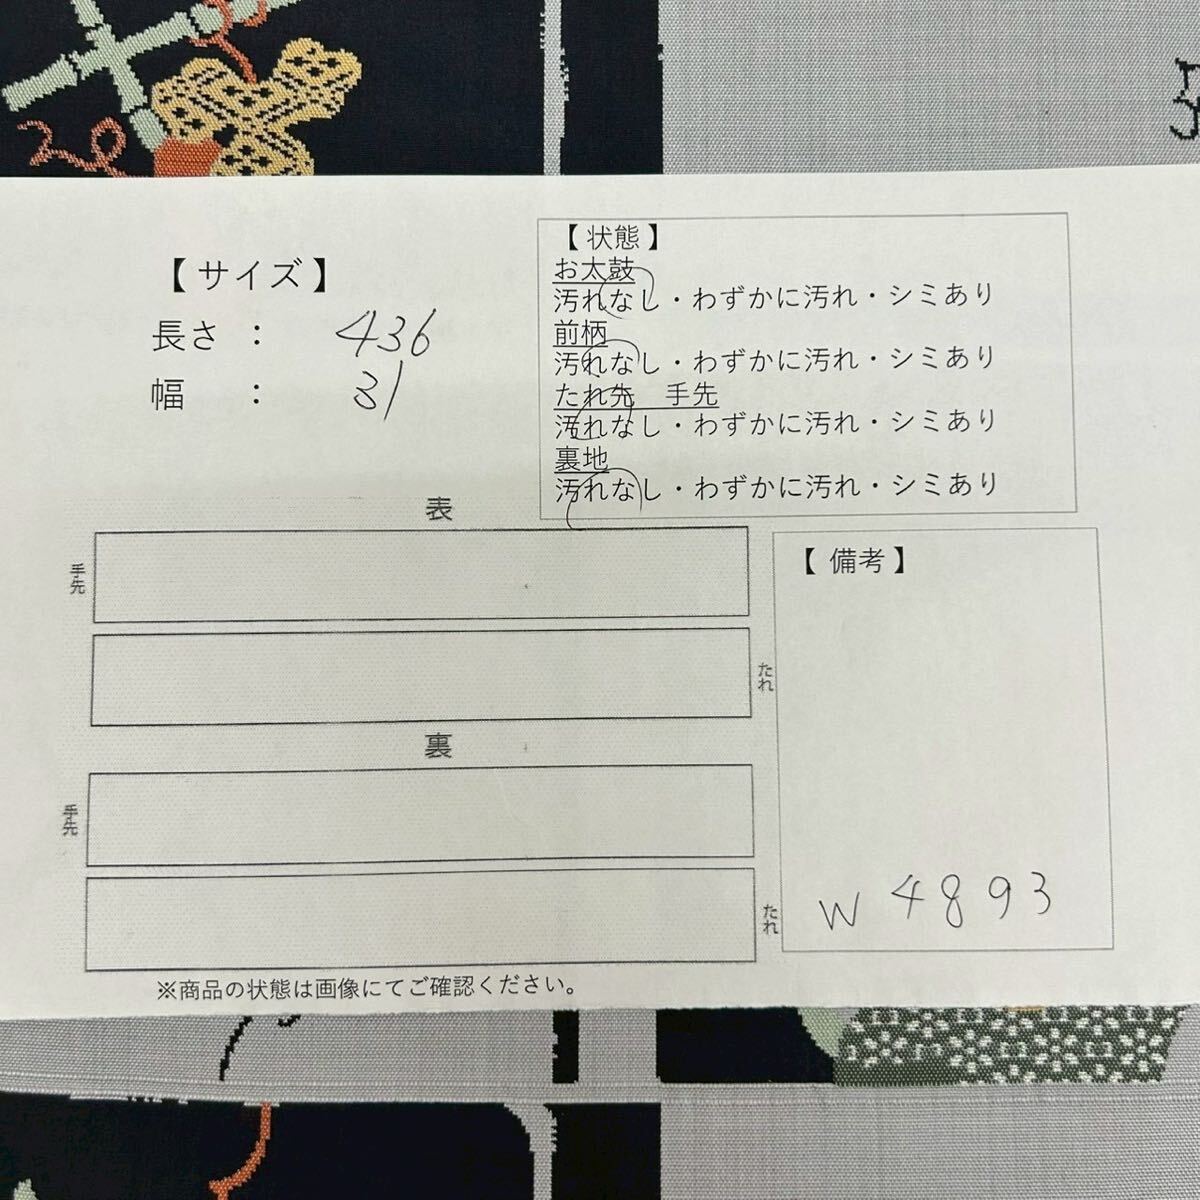 【 サイズ 】
長さ ： 436
幅 ： 31
【 状態 】
お太鼓
汚れなし・わずかに汚れ・シミあり
前柄
汚れなし・わずかに汚れ・シミあり
たれ先 手先
汚れなし・わずかに汚れ・シミあり
裏地
汚れなし・わずかに汚れ・シミあり
表
手先
たれ
裏
手先
たれ
【 備考 】
W 4893
※商品の状態は画像にてご確認ください。